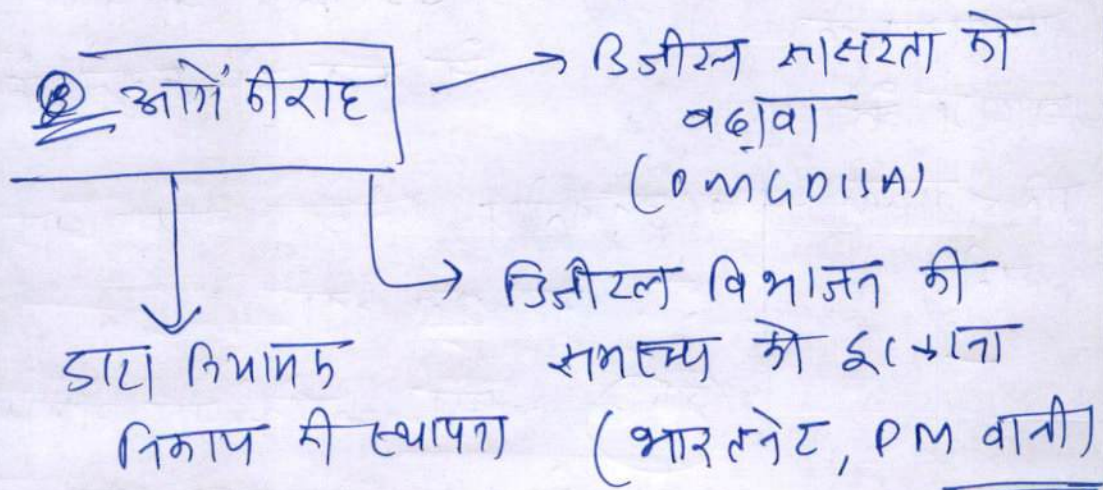 आगें की राह
→ डिजीटल साक्षरता को
बढ़ावा
(PMGDISHA)
→ डिजीटल विभाजन की
समस्या को दूर करना
(भारतनेट, PM वानी)
डाटा नियामक
निकाय की स्थापना